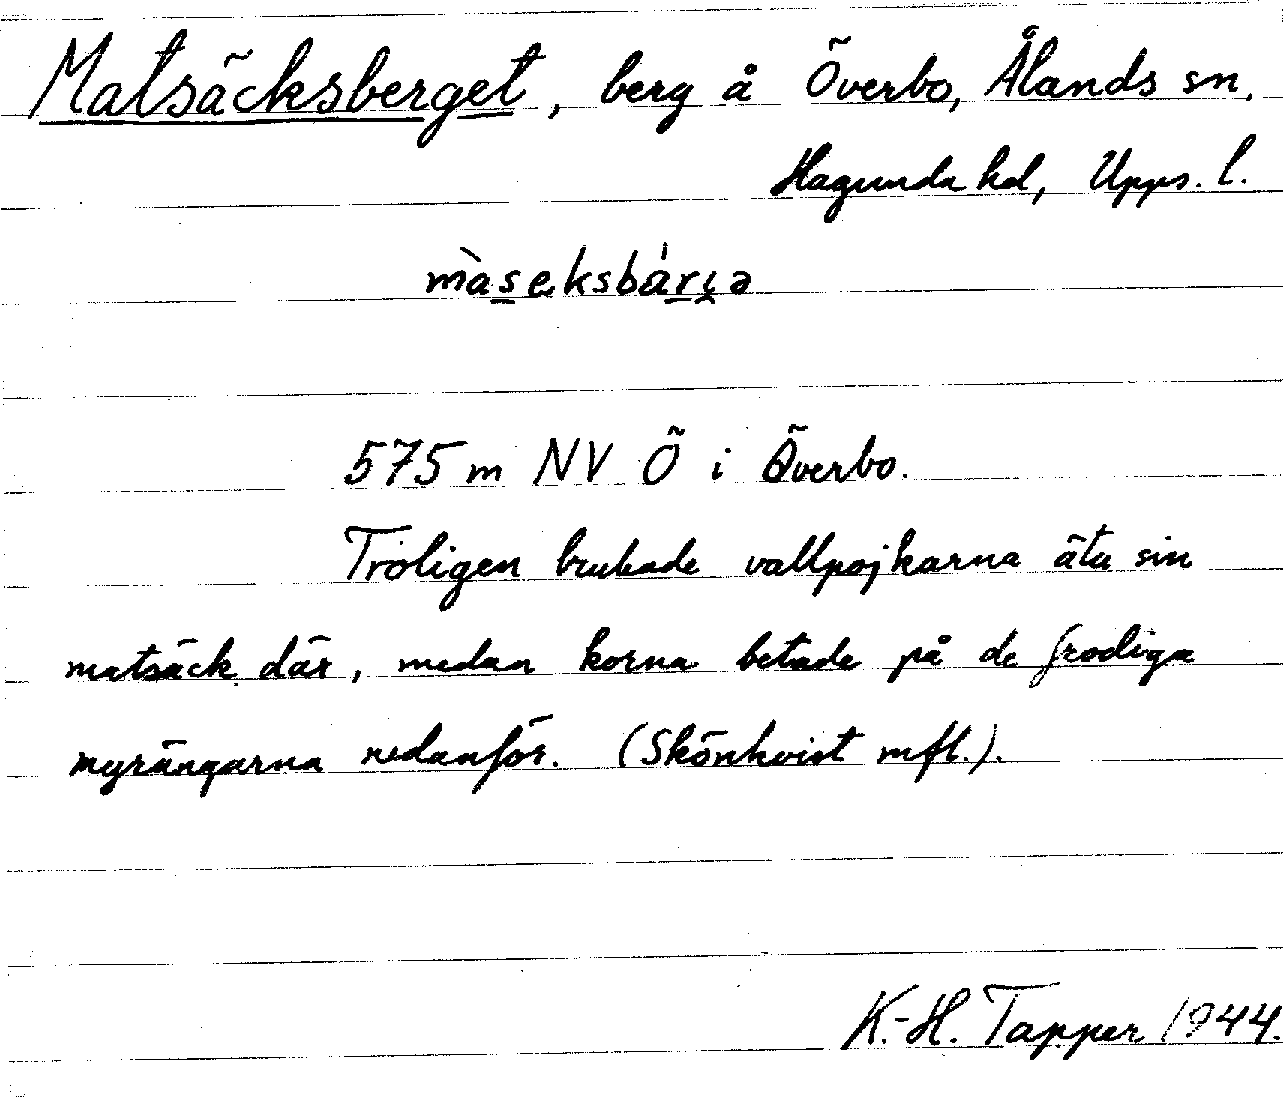 Matsäcksberget, berg å Överbo, Ålands sn,
Hagunda hd, Upps. l.
màseksbár
575 m NV Ö i Överbo.
Troligen brukade vallpojkarna äta sin
matsäck där, medan korna betade på de frodiga
myrängarna nedanför. (Skönkvist mfl.).
K.-H. Tapper 1944.